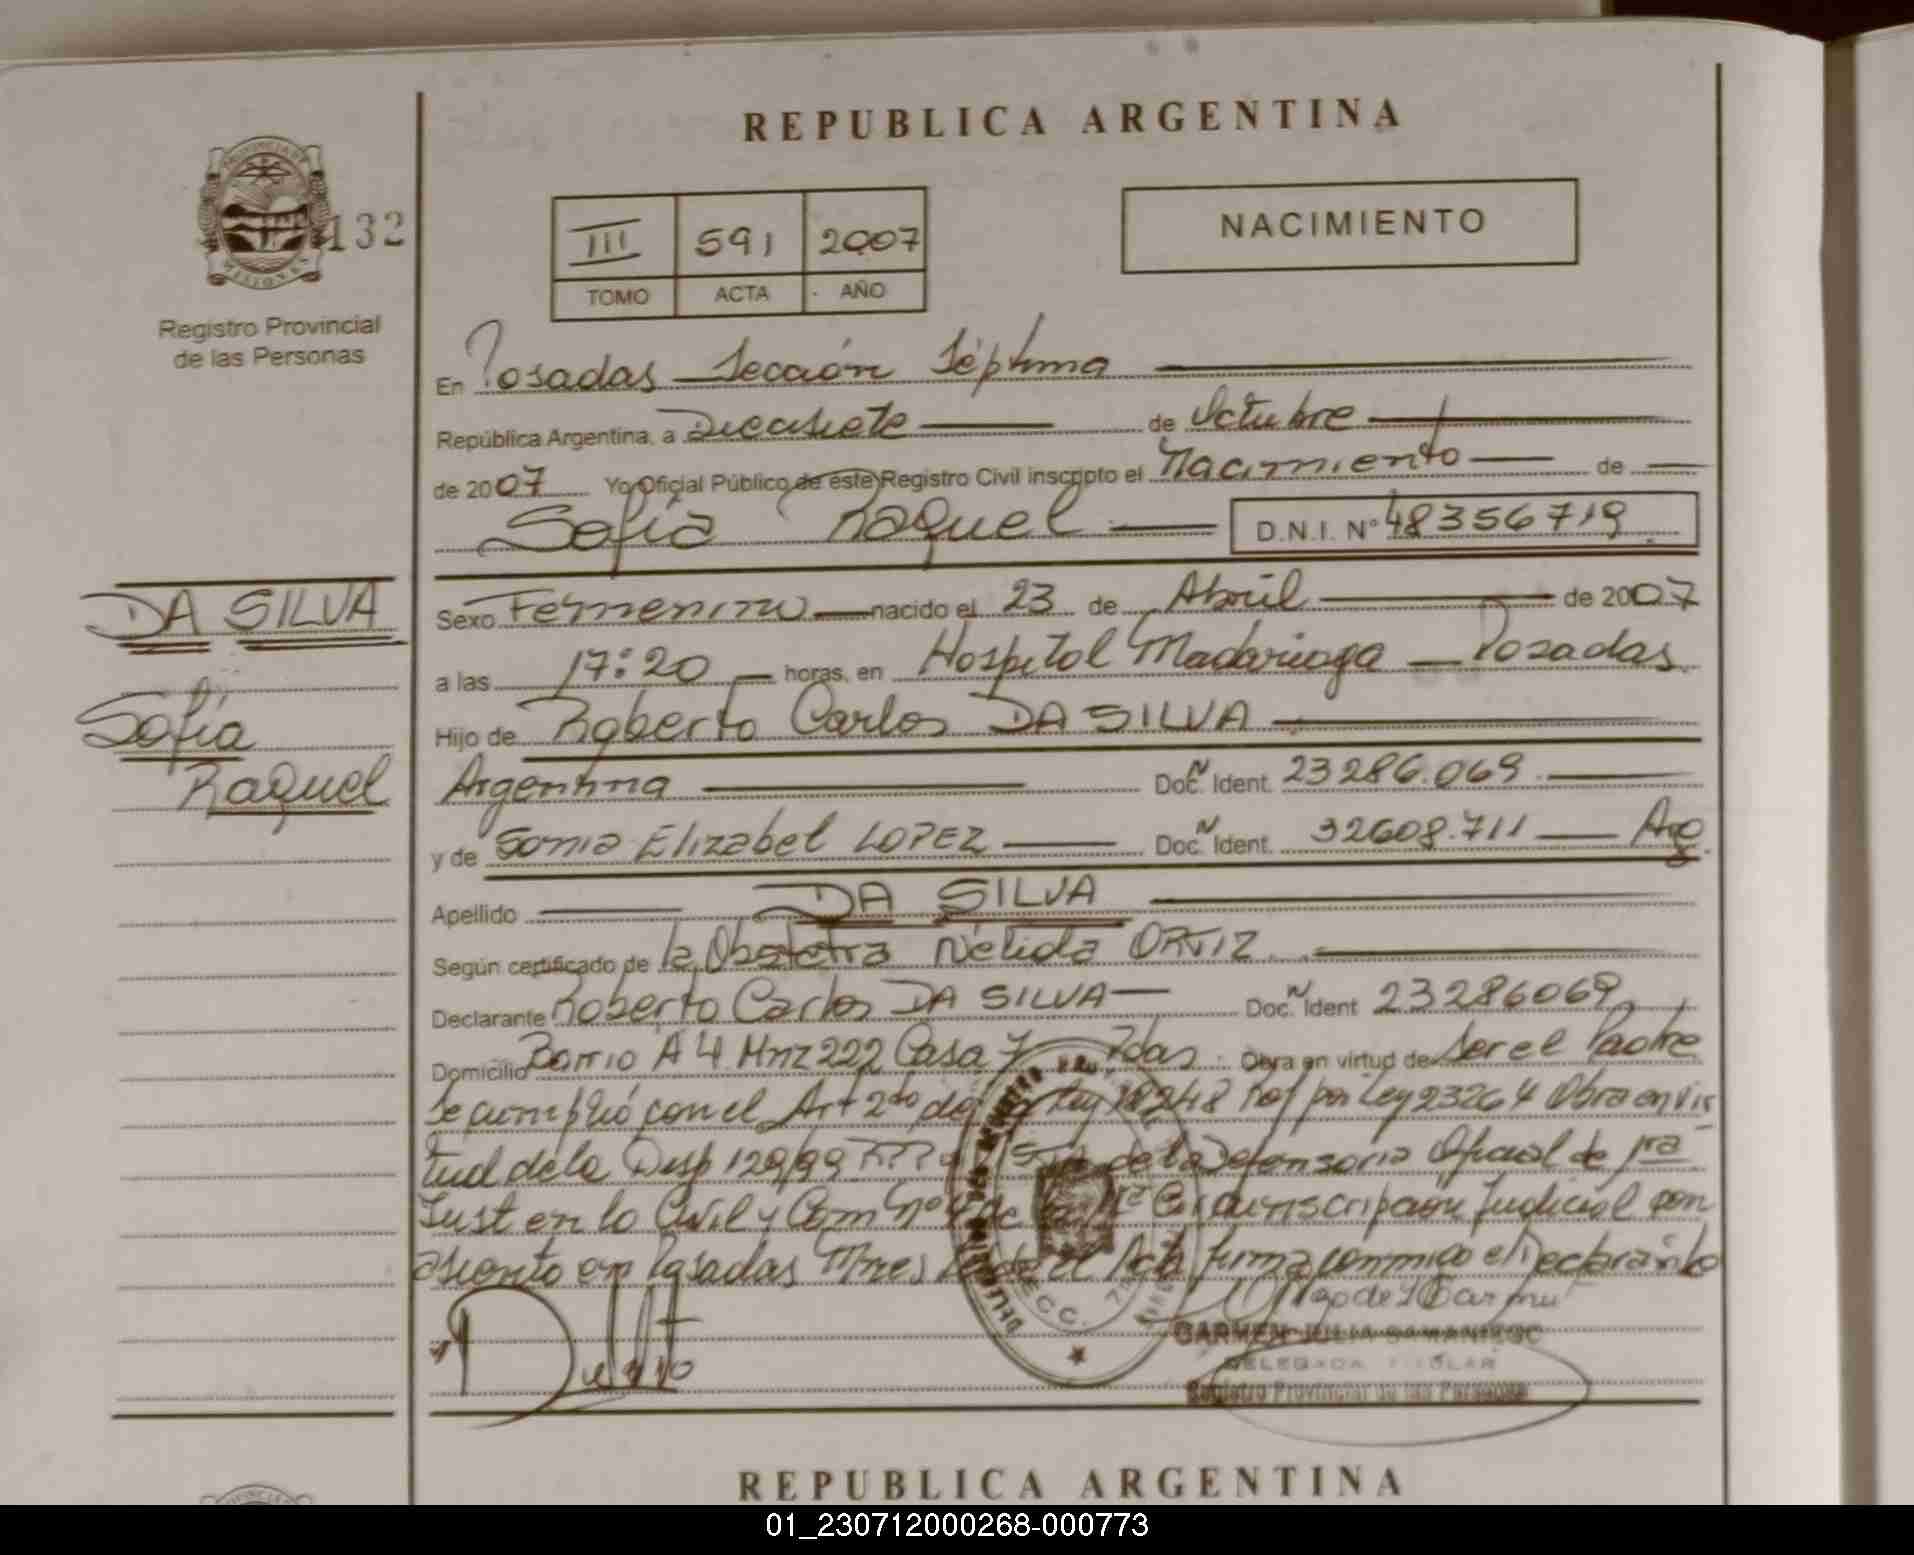 REPUBLICA ARGENTINA
PROVINCIA DE
MISIONES
132
Registro Provincial
de las Personas
III 591 2007
TOMO ACTA AÑO
NACIMIENTO
En Posadas Sección Séptima
República Argentina, a Diecisiete de Octubre
de 2007 Yo Oficial Público de este Registro Civil inscripto el Nacimiento de
Sofía Raquel D.N.I. Nº 48356719
DA SILVA
Sofía
Raquel
Sexo Femenino nacido el 23 de Abril de 2007
a las 17:20 horas, en Hospital Madariaga Posadas
Hijo de Roberto Carlos DA SILVA
Argentina Doc. Ident. 23286.069
y de Sonia Elizabel LOPEZ Doc. Ident. 32608.711 Arg.
Apellido DA SILVA
Según certificado de la Obstetra Nélida ORTIZ
Declarante Roberto Carlos DA SILVA Doc. Ident 23286069
Domicilio Barrio A 4 Mnz 222 Casa 7 Pdas. Obra en virtud de Ser el Padre
Se cumplió con el Art 2do de la Ley 18248 Ref por Ley 23264 Obra en vir
tud de la Disp 129/99 de la Defensoria Oficial de 1ra
Inst en lo Civil y Com Nº 4 de la 1ra Circunscripción Judicial con
asiento en Posadas Mnes Leida el Acta firma conmigo el Declarante
CARMEN JULIA SAMANIEGO
DELEGADA TITULAR
Registro Provincial de las Personas
REPUBLICA ARGENTINA
01_230712000268-000773